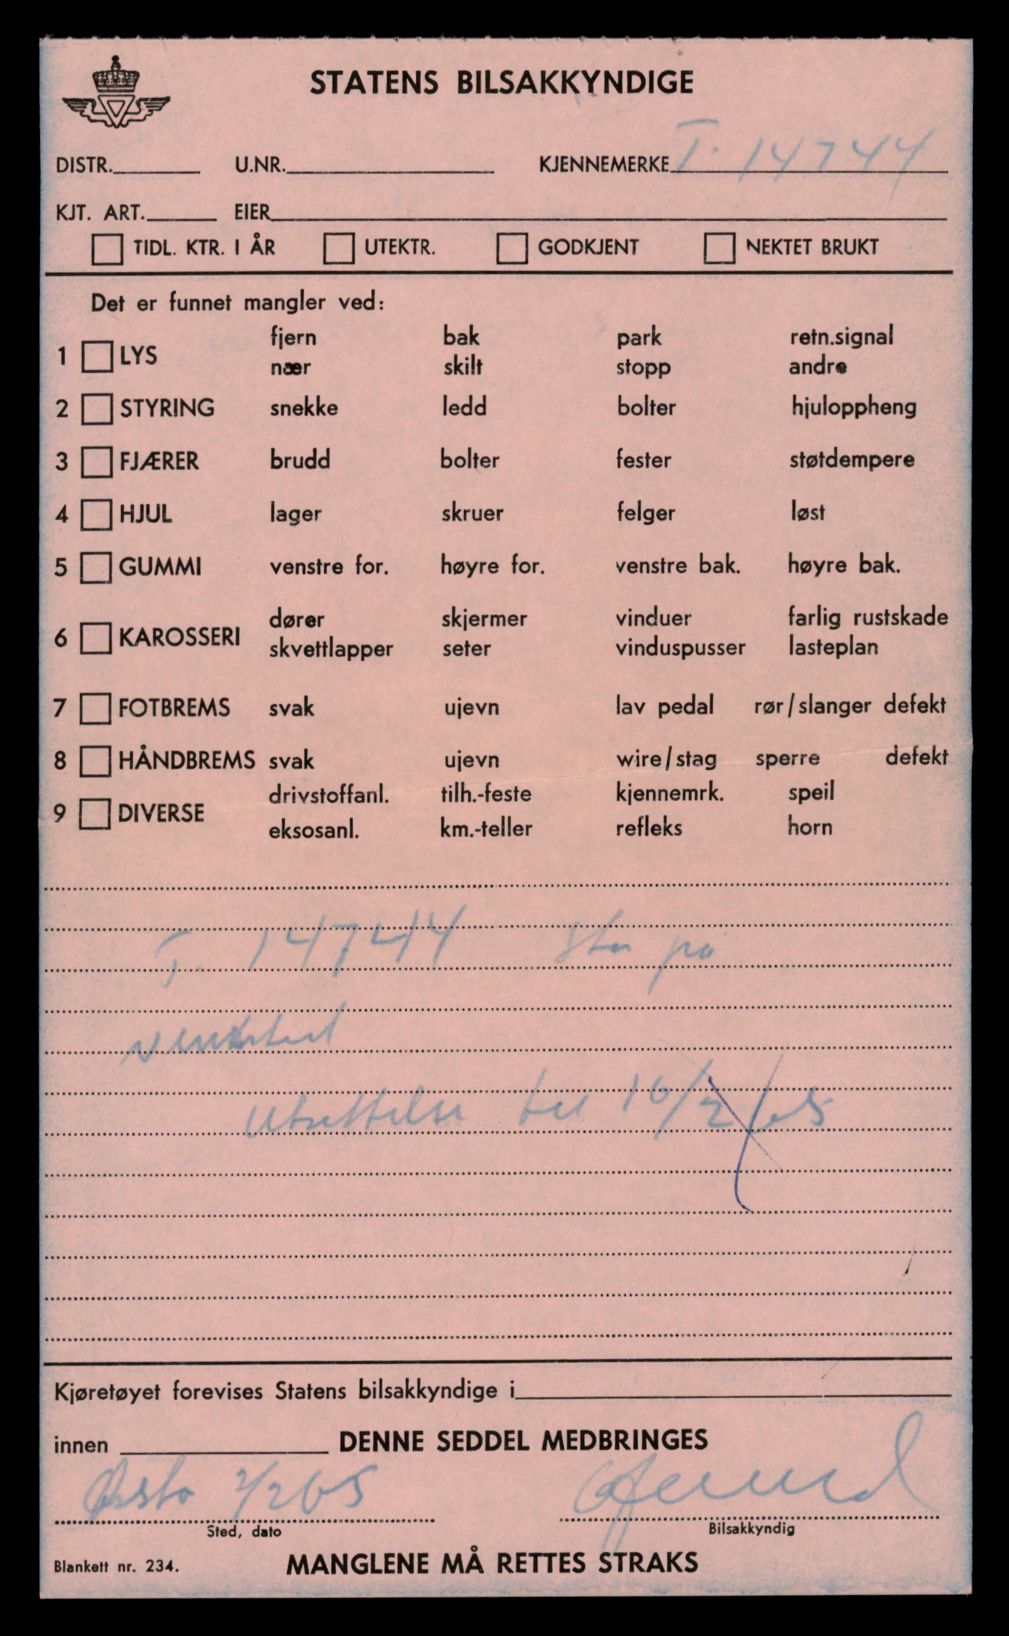 STATENS BILSAKKYNDIGE
DISTR. U.NR. KJENNEMERKE T. 14744
KJT. ART. EIER
TIDL. KTR. I ÅR UTEKTR. GODKJENT NEKTET BRUKT
Det er funnet mangler ved:
1 LYS fjern bak park retn.signal
nær skilt stopp andre
2 STYRING snekke ledd bolter hjuloppheng
3 FJÆRER brudd bolter fester støtdempere
4 HJUL lager skruer felger løst
5 GUMMI venstre for. høyre for. venstre bak. høyre bak.
6 KAROSSERI dører skjermer vinduer farlig rustskade
skvettlapper seter vinduspusser lasteplan
7 FOTBREMS svak ujevn lav pedal rør/slanger defekt
8 HÅNDBREMS svak ujevn wire/stag sperre defekt
9 DIVERSE drivstoffanl. tilh.-feste kjennemrk. speil
eksosanl. km.-teller refleks horn
T. 14744 Står på
verksted
Utsettelse til 10/2/65
Kjøretøyet forevises Statens bilsakkyndige i
innen DENNE SEDDEL MEDBRINGES
Ørsta 2/2 65
Sted, dato Bilsakkyndig
Blankett nr. 234. MANGLENE MÅ RETTES STRAKS